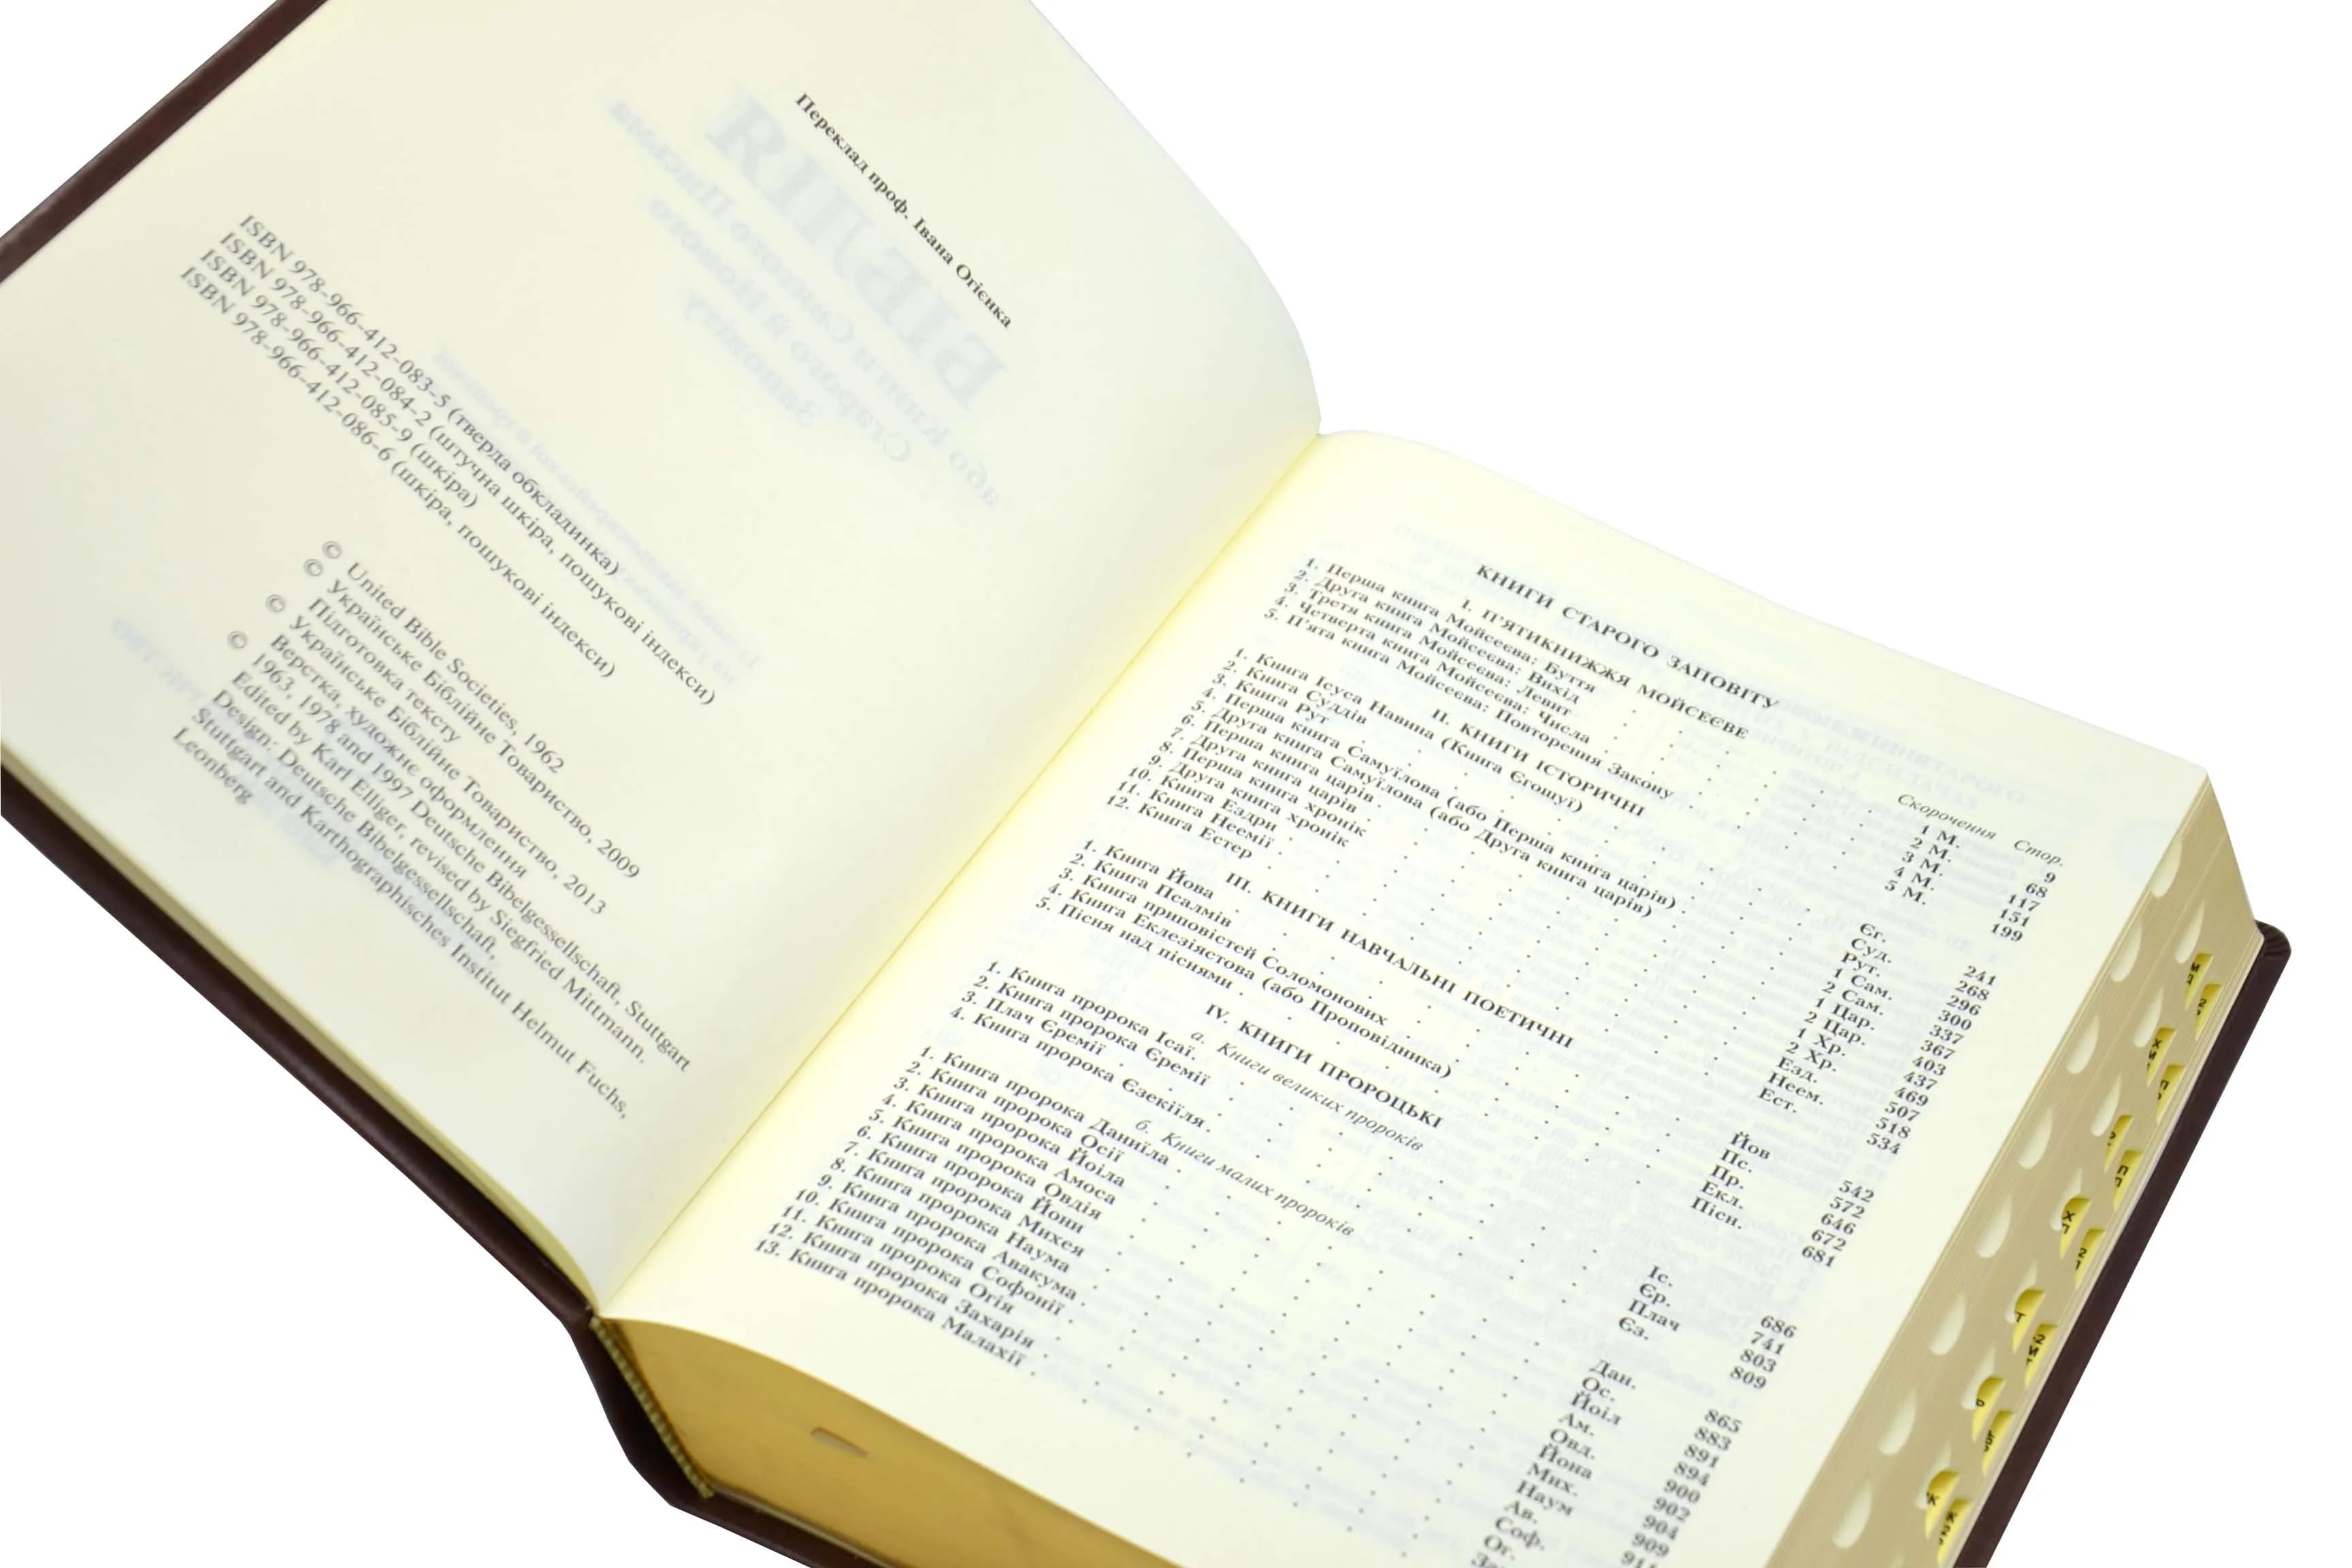 Переклад проф. Івана Огієнка
ISBN 978-966-412-083-5 (тверда обкладинка)
ISBN 978-966-412-084-2 (штучна шкіра, пошукові індекси)
ISBN 978-966-412-085-9 (шкіра)
ISBN 978-966-412-086-6 (шкіра, пошукові індекси)
© United Bible Societies, 1962
© Українське Біблійне Товариство, 2009
Підготовка тексту
© Українське Біблійне Товариство, 2013
Верстка, художнє оформлення
© 1963, 1978 and 1997 Deutsche Bibelgesellschaft, Stuttgart
Edited by Karl Elliger, revised by Siegfried Mittmann.
Design: Deutsche Bibelgesellschaft,
Stuttgart and Karthographisches Institut Helmut Fuchs,
Leonberg
КНИГИ СТАРОГО ЗАПОВІТУ
І. П'ЯТИКНИЖЖЯ МОЙСЕЄВЕ
Скорочення Стор.
1. Перша книга Мойсеєва: Буття 1 М. 9
2. Друга книга Мойсеєва: Вихід 2 М. 68
3. Третя книга Мойсеєва: Левит 3 М. 117
4. Четверта книга Мойсеєва: Числа 4 М. 151
5. П'ята книга Мойсеєва: Повторення Закону 5 М. 199
ІІ. КНИГИ ІСТОРИЧНІ
1. Книга Ісуса Навина (Книга Єгошуї) Єг. 241
2. Книга Суддів Суд. 268
3. Книга Рут Рут. 296
4. Перша книга Самуїлова (або Перша книга царів) 1 Сам. 300
5. Друга книга Самуїлова (або Друга книга царів) 2 Сам. 337
6. Перша книга царів 1 Цар. 367
7. Друга книга царів 2 Цар. 403
8. Перша книга хронік 1 Хр. 437
9. Друга книга хронік 2 Хр. 469
10. Книга Ездри Езд. 507
11. Книга Неемії Неем. 518
12. Книга Естер Ест. 534
ІІІ. КНИГИ НАВЧАЛЬНІ ПОЕТИЧНІ
1. Книга Йова Йов 542
2. Книга Псалмів Пс. 572
3. Книга приповістей Соломонових Пр. 646
4. Книга Еклезіястова (або Проповідника) Екл. 672
5. Пісня над піснями Пісн. 681
IV. КНИГИ ПРОРОЦЬКІ
а. Книги великих пророків
1. Книга пророка Ісаї Іс. 686
2. Книга пророка Єремії Єр. 741
3. Плач Єремії Плач 803
4. Книга пророка Єзекіїля Єз. 809
б. Книги малих пророків
1. Книга пророка Даниїла Дан. 865
2. Книга пророка Осії Ос. 883
3. Книга пророка Йоіла Йоіл 891
4. Книга пророка Амоса Ам. 894
5. Книга пророка Овдія Овд. 900
6. Книга пророка Йони Йона 902
7. Книга пророка Михея Мих. 904
8. Книга пророка Наума Наум 909
9. Книга пророка Авакума Ав.
10. Книга пророка Софонії Соф.
11. Книга пророка Огія Ог.
12. Книга пророка Захарія
13. Книга пророка Малахії